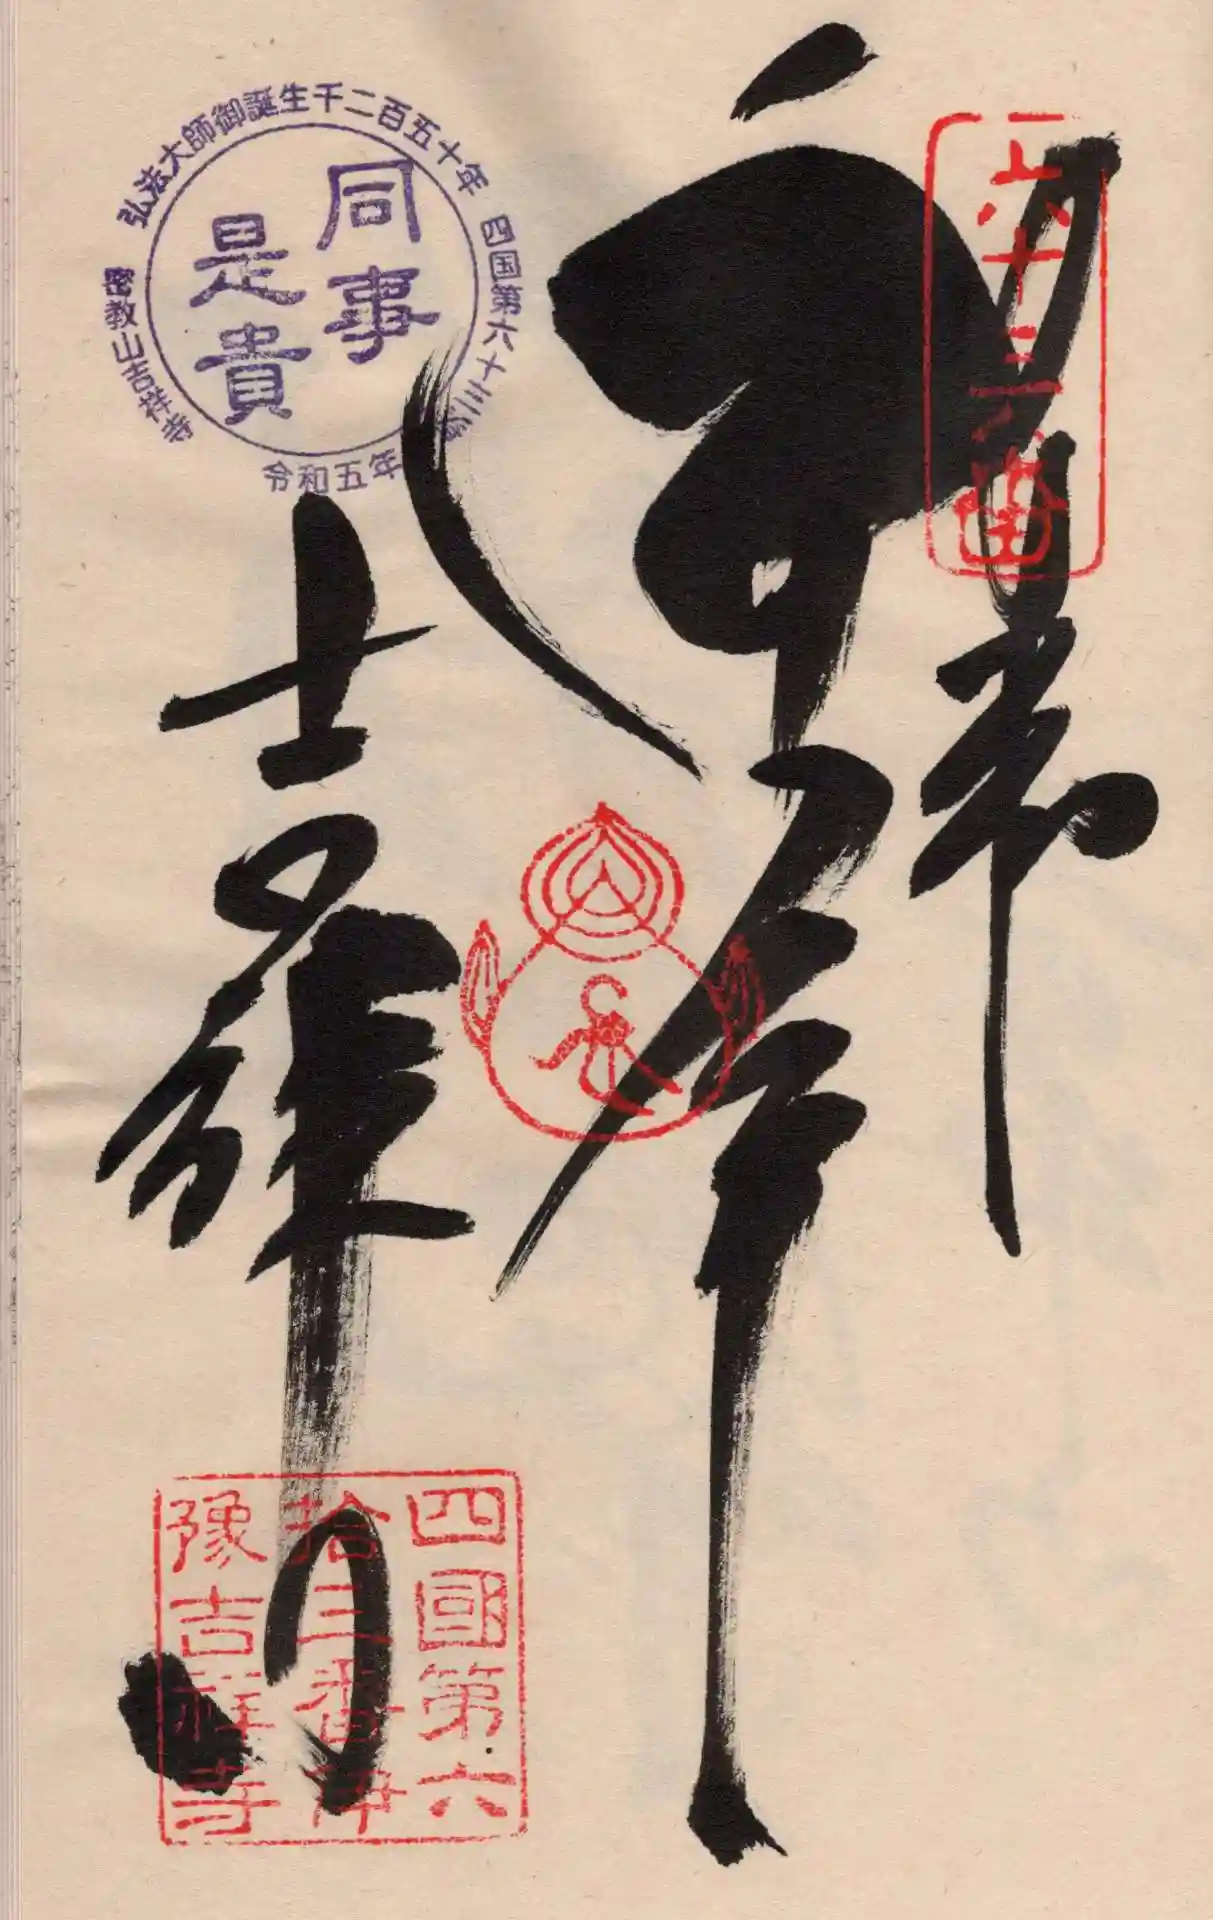 弘法大師御誕生千二百五十年
四国第六十三番
密教山吉祥寺
令和五年
同事
是貴
六十三番
奉拝
吉祥寺
四國第六
拾三番伊
豫吉祥寺